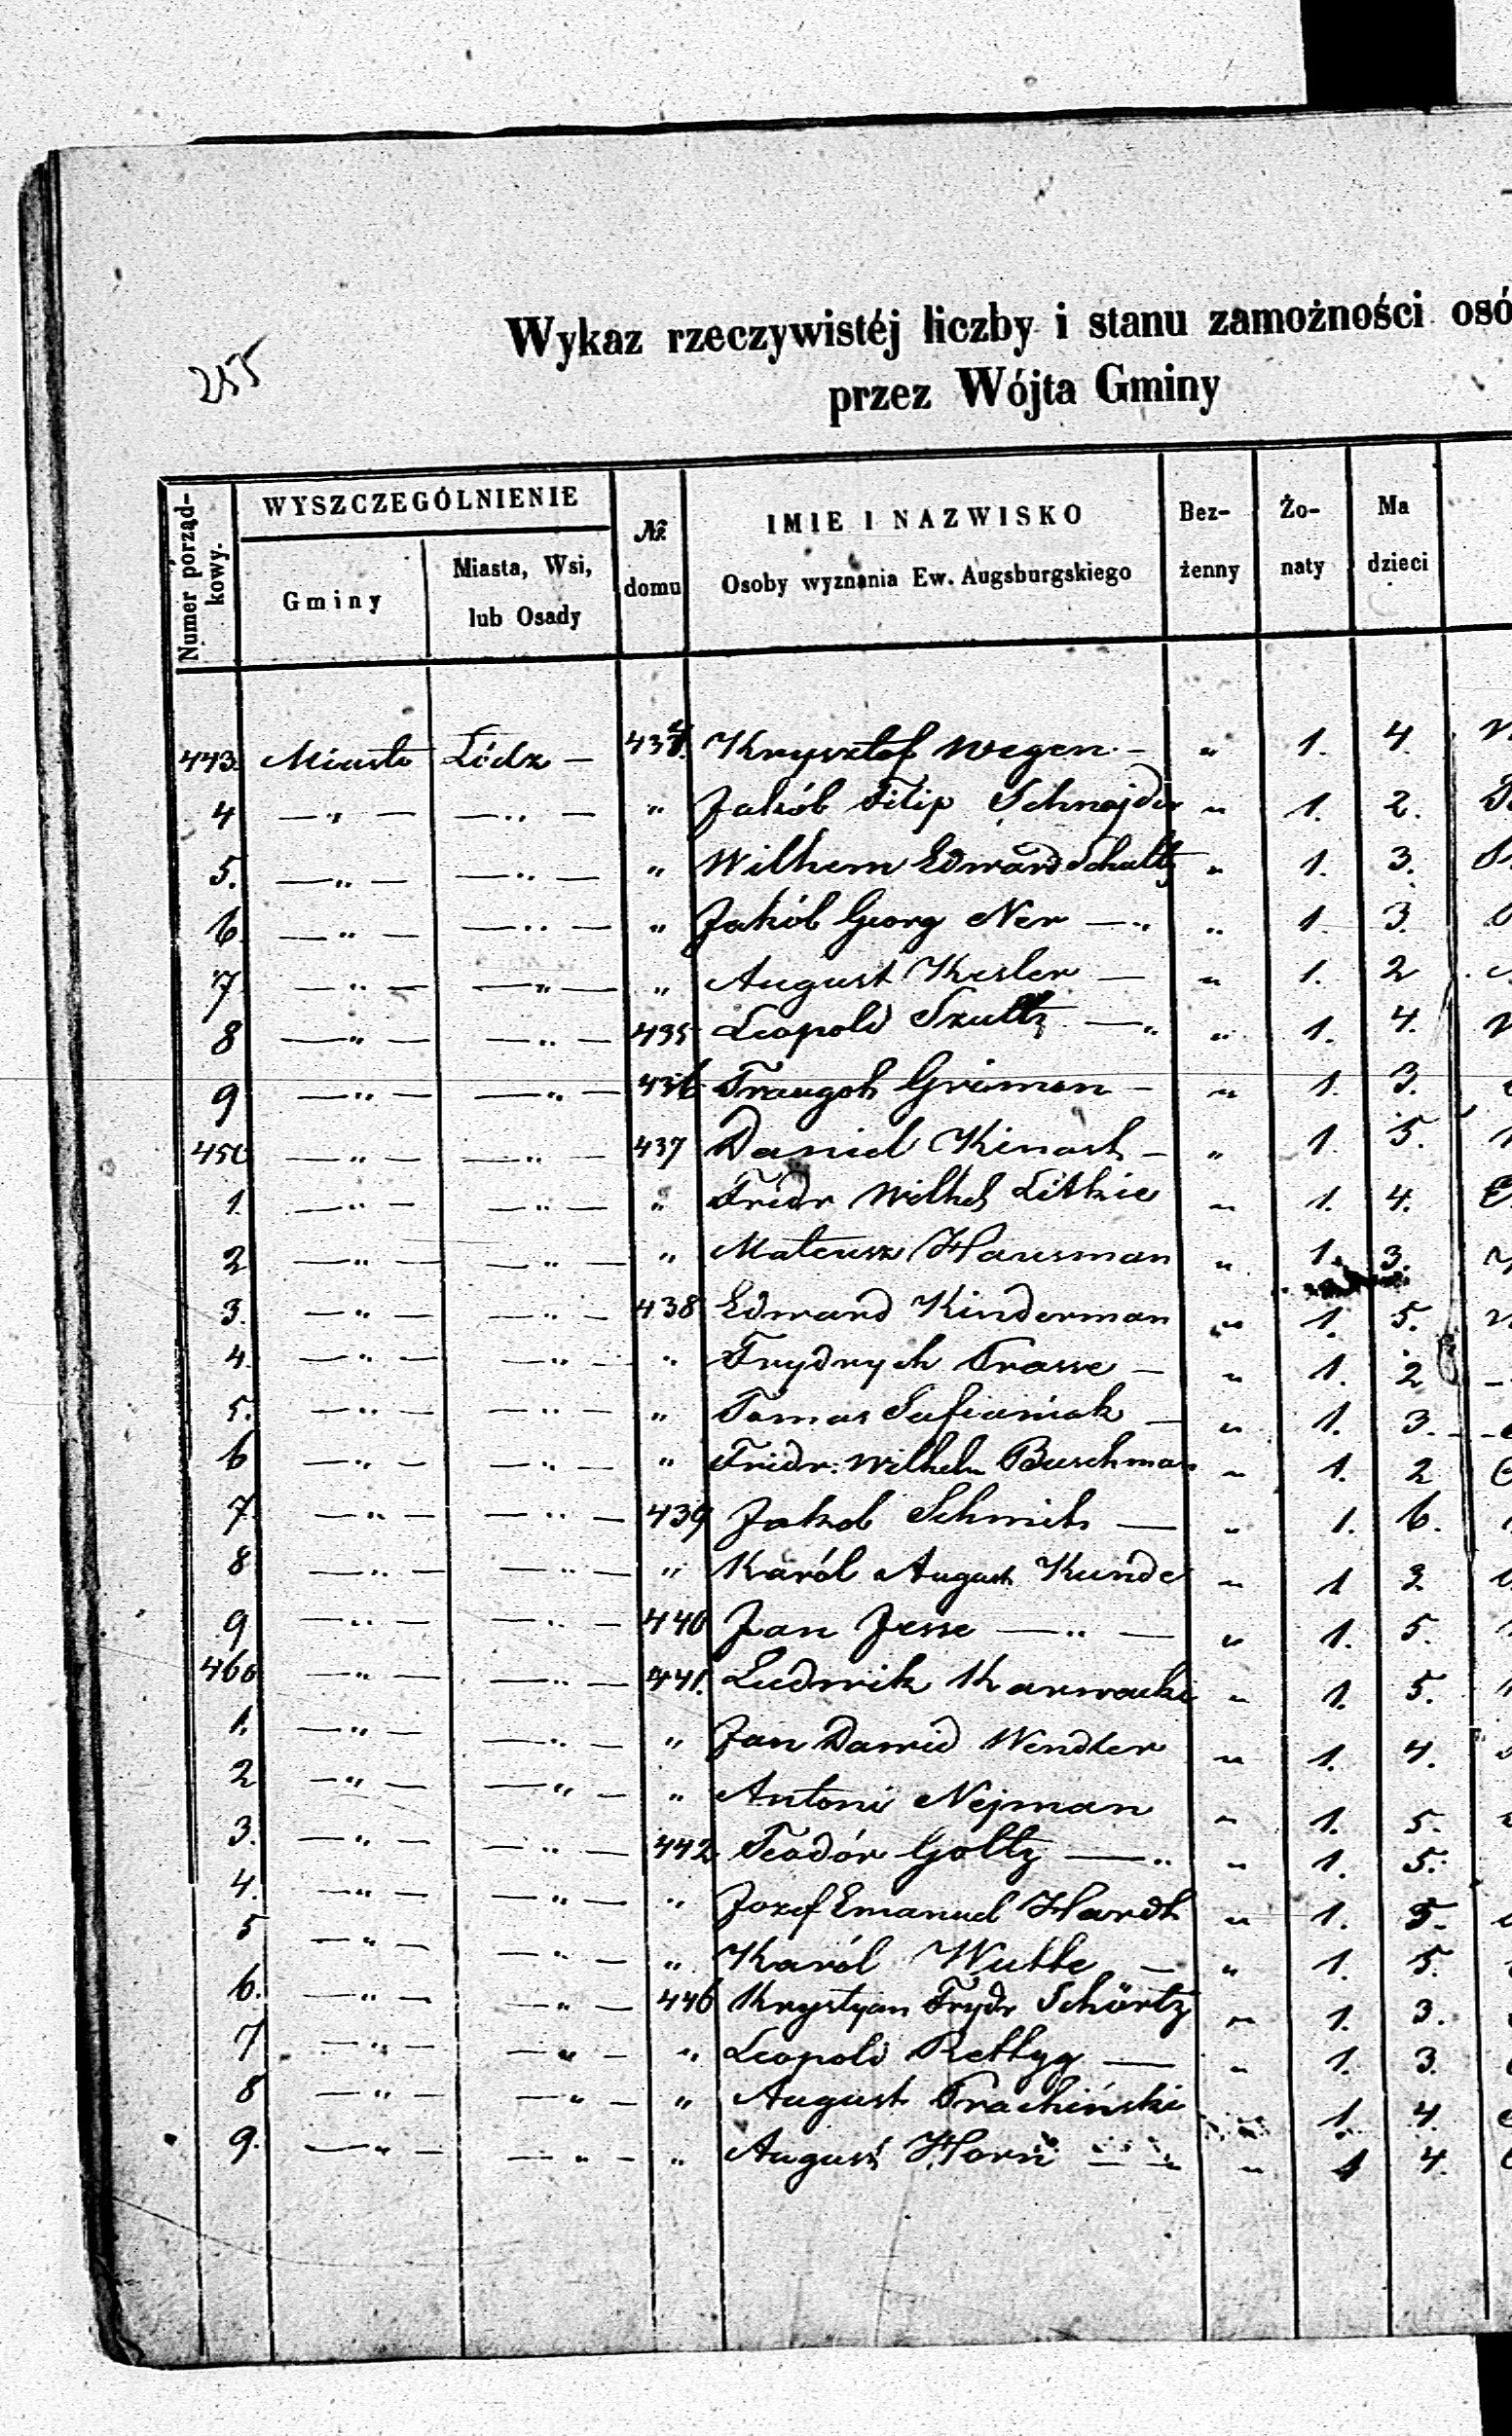 255
Wykaz rzeczywistéj liczby i stanu zamożności osó
przez Wójta Gminy
Numer porządkowy. WYSZCZEGÓLNIENIE Gminy Miasta, Wsi, lub Osady № domu IMIE I NAZWISKO Osoby wyznania Ew. Augsburgskiego Bezżenny Żonaty Ma dzieci
443. Miasto Łódz — 434. Krysztof Wegen — " 1. 4.
4 — " — — " — " Jakób Filip Schnejder " 1. 2.
5. — " — — " — " Wilhem Edward Schultz " 1. 3.
6. — " — — " — " Jakób Georg Ner — " " 1. 3.
7 — " — — " — " August Kesler — " 1. 2
8 — " — — " — 435 Leopold Szultz — " " 1. 4.
9 — " — — " — 436 Traugoh Griman — " 1. 3.
450 — " — — " — 437 Daniel Kinast — " 1. 5.
1. — " — — " — " Fridr Wilhel Litkie " 1. 4.
2 — " — — " — " Mateusz Hausman " 1. 3.
3. — " — — " — 438 Edward Kinderman " 1. 5.
4. — " — — " — " Frydrych Trasse — " 1. 2
5. — " — — " — " Tomas Safianiak — " 1. 3.
6 — " — — " — " Fridr. Wilhelm Buschman " 1. 2
7. — " — — " — 439 Jakob Schmih — " 1. 6.
8 — " — — " — " Karól August Kunde " 1 3
9 — " — — " — 440 Jan Jesse — " — " 1. 5.
460 — " — — " — 441. Ludwik Karwacki " 1. 5.
1. — " — — " — " Jan Dawid Wendler " 1. 4.
2 — " — — " — " Antoni Nejman " 1. 5.
3. — " — — " — 442 Teodór Goltz — " " 1. 5.
4. — " — — " — " Jozef Emanuel Hardt " 1. 5.
5 — " — — " — " Karól Wutke — " 1. 5.
6. — " — — " — 446 Krystyan Frydr Schörtz " 1. 3.
7 — " — — " — " Leopold Rettyg — " 1. 3.
8 — " — — " — " August Trachiński 1. 4.
9. — " — — " — " August Horn — " 1 4.